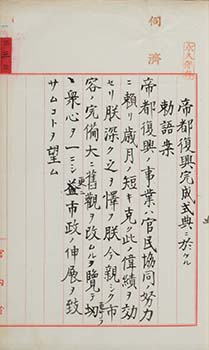 伺
済
帝都復興完成式典ニ於ケル
勅語案
帝都復興ノ事業ハ官民協同ノ努力
ニ頼リ歳月ノ短キ克ク此ノ偉績ヲ効
セリ朕深ク之ヲ懌フ朕今親シク市
容ノ完備大ニ舊觀ヲ改ムルヲ覽テ切
衆心ヲ一ニシ益市政ノ伸展ヲ致
サムコトヲ望ム
宮内省